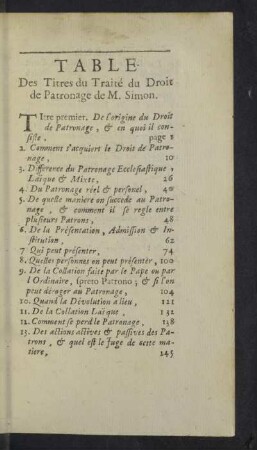 TABLE
Des Titres du Traité du Droit
de Patronage de M. Simon.
TItre premier. De l'origine du Droit
de Patronage, & en quoi il con-
siste. page 1
2. Comment s'acquiert le Droit de Patro-
nage, 10
3. Difference du Patronage Ecclesiastique,
Laïque & Mixte, 26
4. Du Patronage réel & personel, 40
5. De quelle maniere on succede au Patro-
nage, & comment il se regle entre
plusieurs Patrons, 48
6. De la Présentation, Admission & In-
stitution, 62
7 Qui peut présenter, 74
8. Quelles personnes on peut présenter, 100
9. De la Collation faite par le Pape ou par
l'Ordinaire, spreto Patrono; & si l'on
peut déroger au Patronage, 104
10. Quand la Dévolution a lieu, 121
11. De la Collation Laïque, 132
12. Comment se perd le Patronage, 138
13. Des actions actives & passives des Pa-
trons, & quel est le Juge de cette ma-
tiere, 145